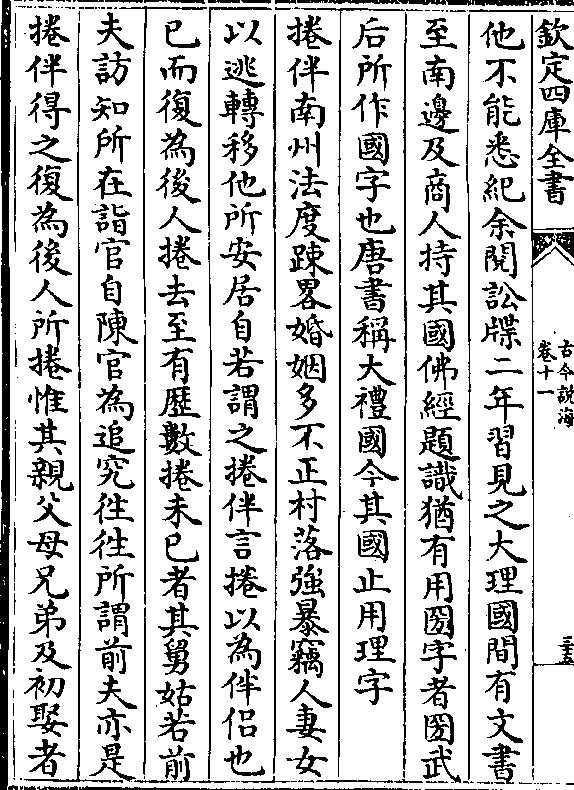 欽定四庫全書
古今說海
卷十一
三十五
他不能悉紀余閱訟牒二年習見之大理國間有文書
至南邊及商人持其國佛經題識猶有用圀字者圀武
后所作國字也唐書稱大禮國今其國止用理字
捲伴南州法度踈畧婚姻多不正村落強暴竊人妻女
以逃轉移他所安居自若謂之捲伴言捲以為伴侣也
已而復為後人捲去至有歷數捲未已者其舅姑若前
夫訪知所在詣官自陳官為追究徃徃所謂前夫亦是
捲伴得之復為後人所捲惟其親父母兄弟及初娶者